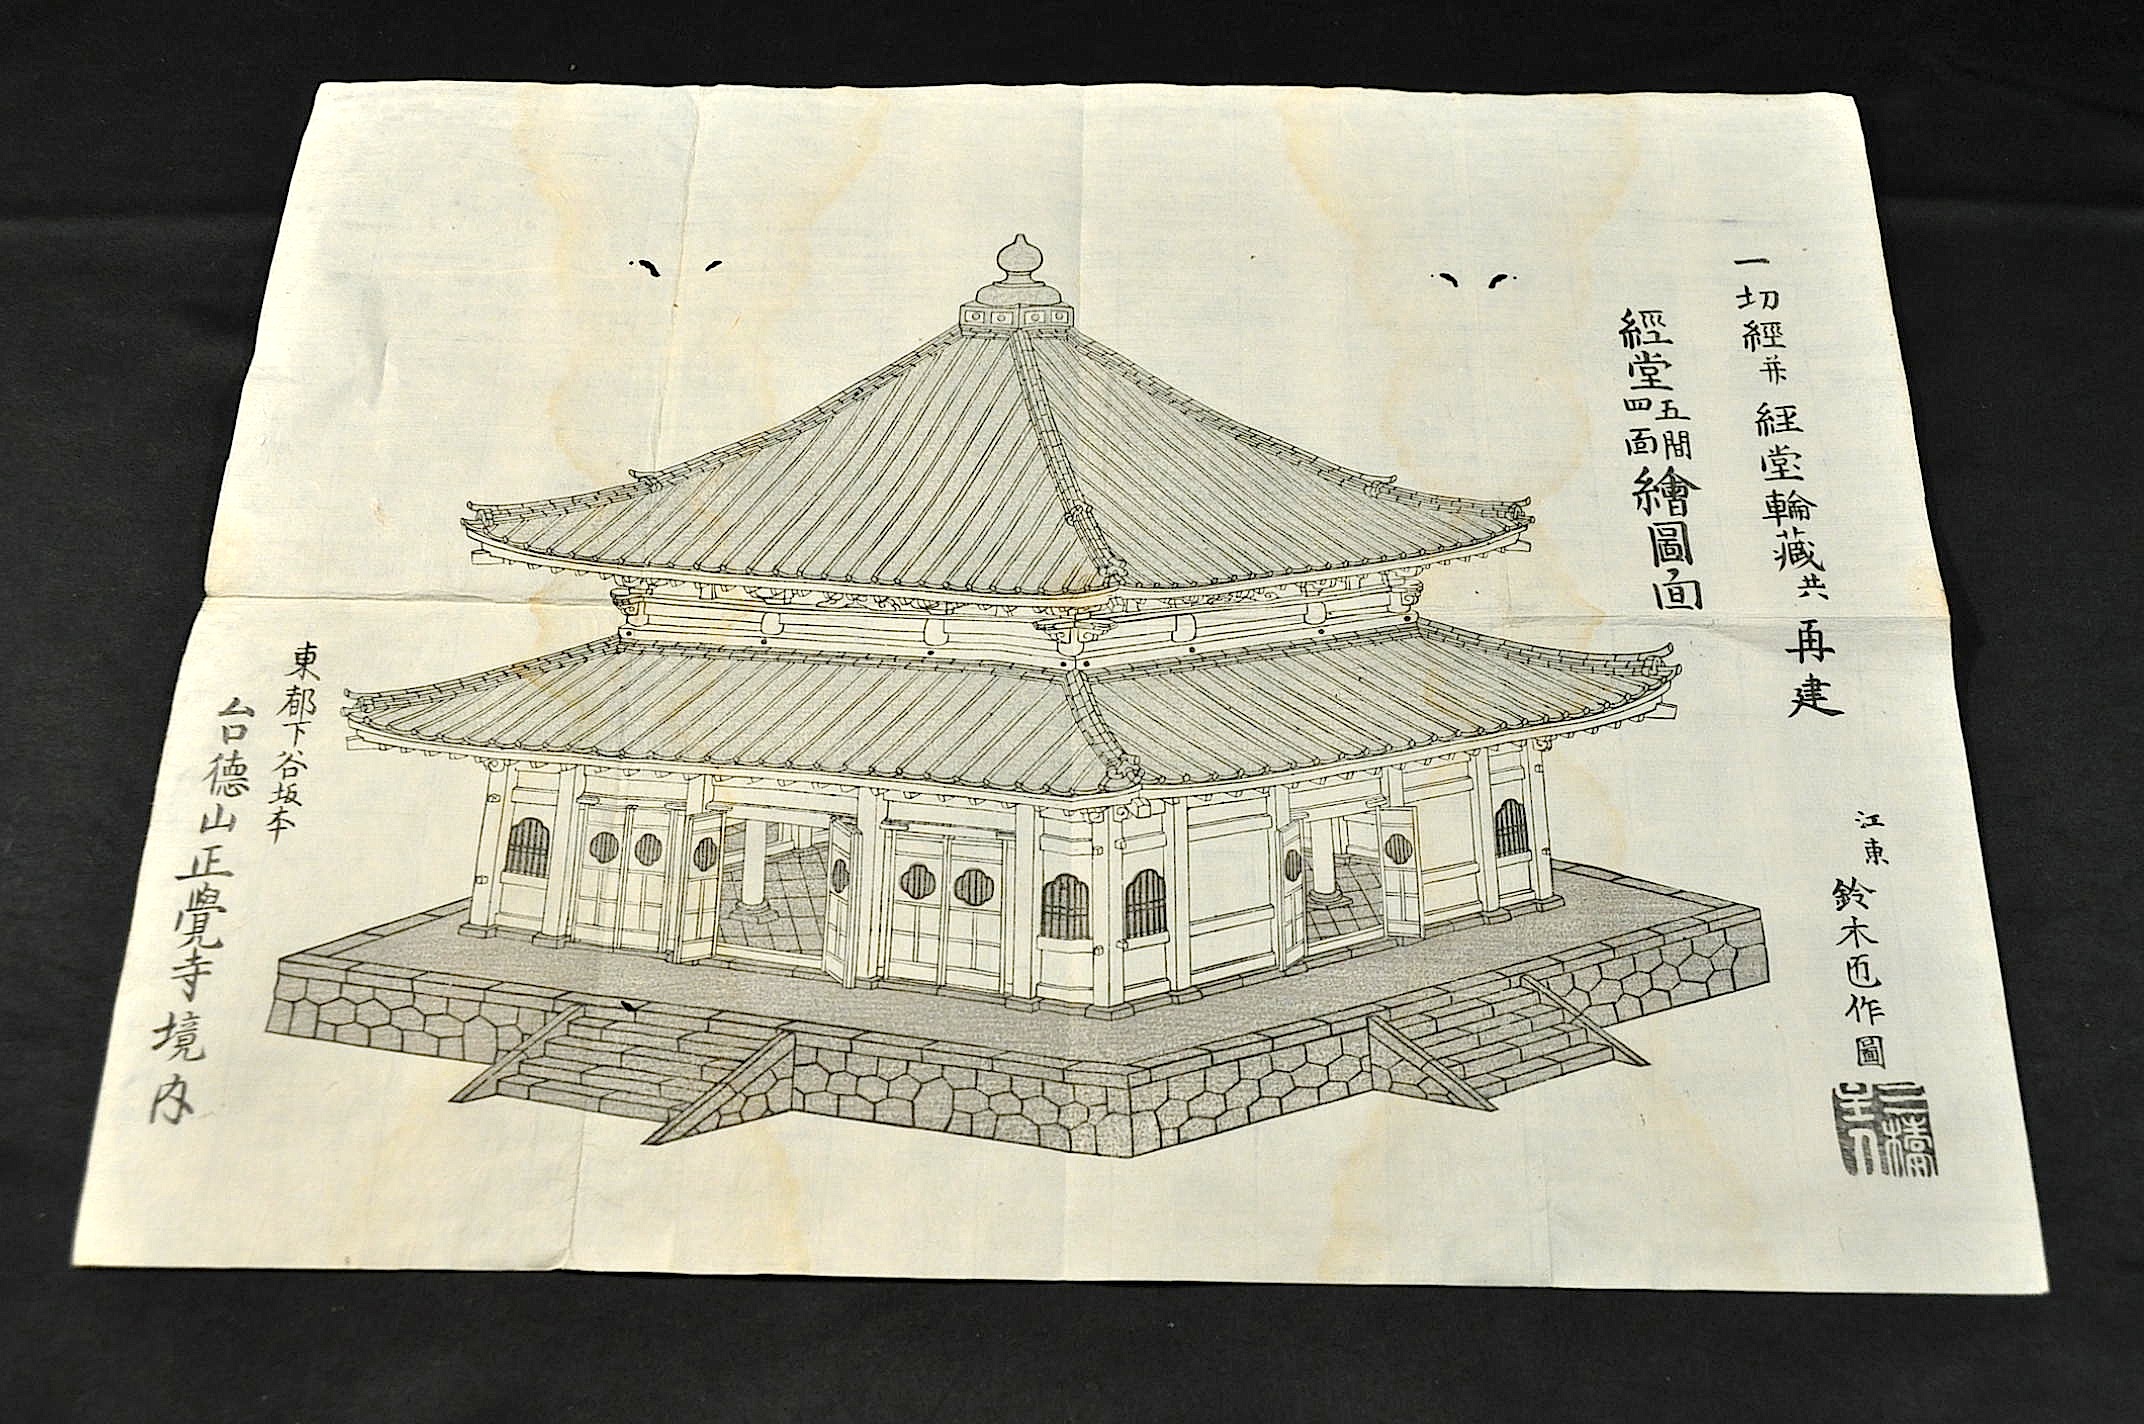 一切經并經堂輪藏共再建
經堂五間四面繪圖面
江東 鈴木𠤎作圖
東都下谷坂本
台徳山正覺寺境内